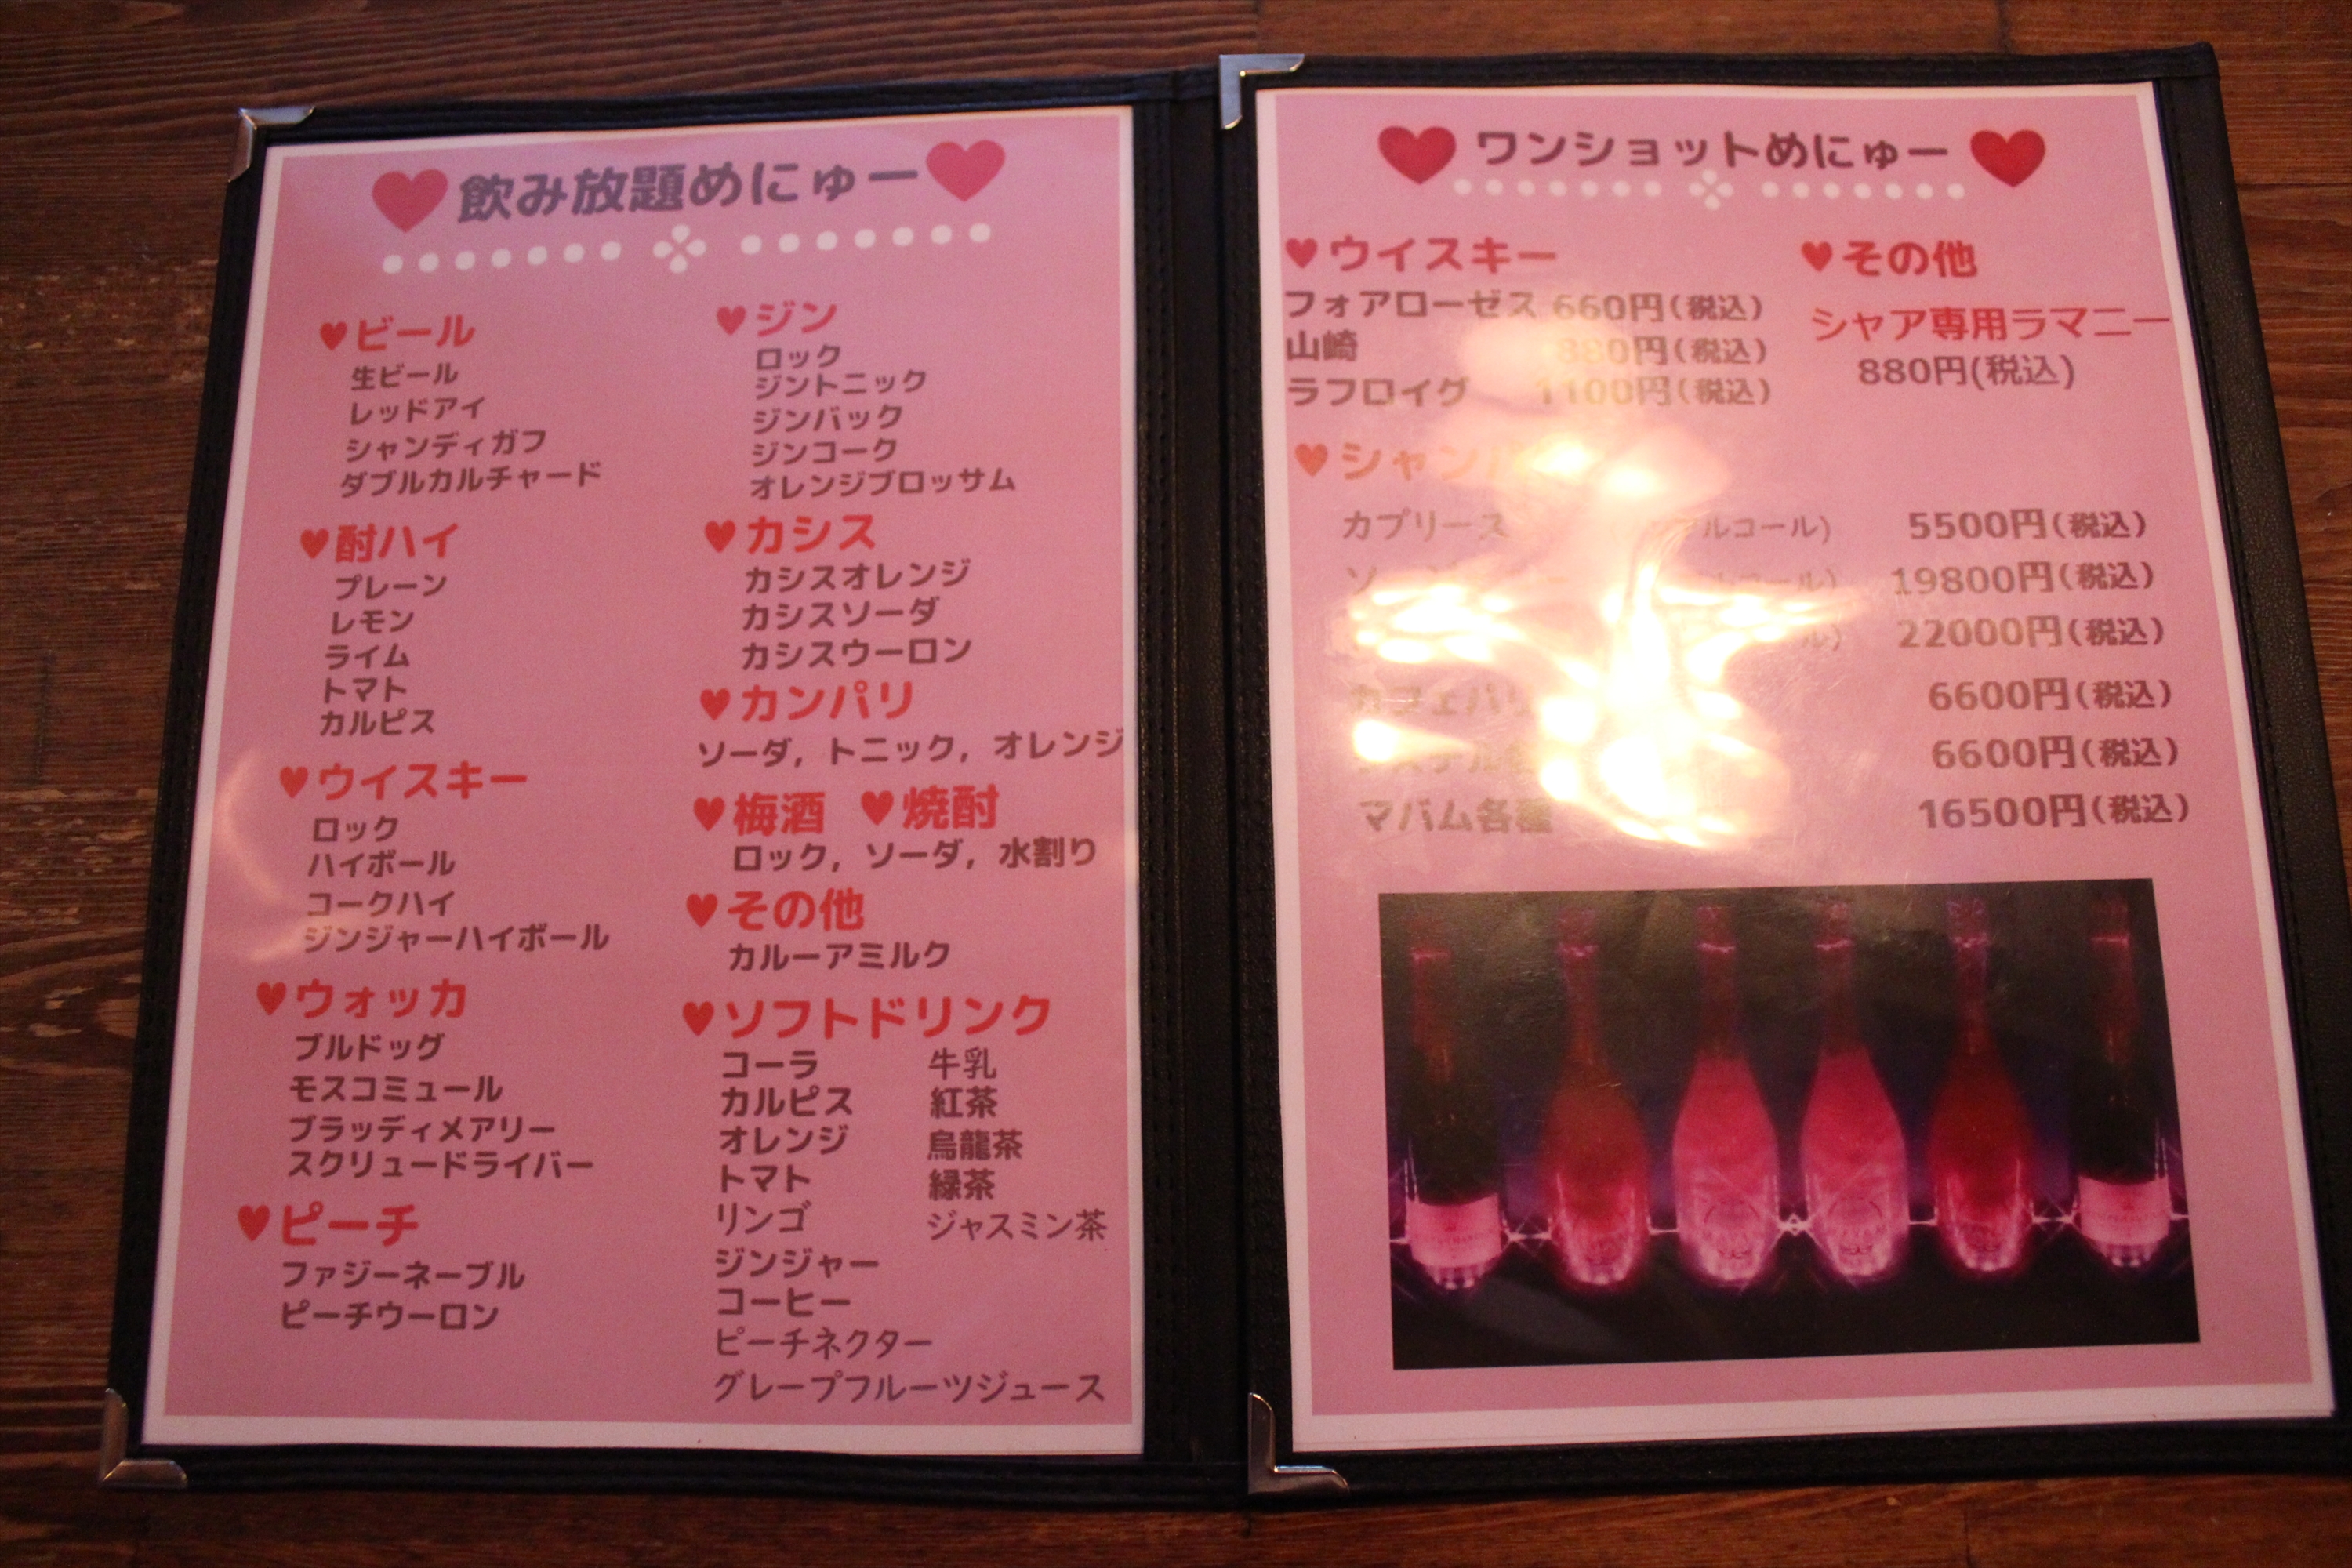 飲み放題めにゅー
♥ビール
生ビール
レッドアイ
シャンディガフ
ダブルカルチャード
♥酎ハイ
プレーン
レモン
ライム
トマト
カルピス
♥ウイスキー
ロック
ハイボール
コークハイ
ジンジャーハイボール
♥ウォッカ
ブルドッグ
モスコミュール
ブラッディメアリー
スクリュードライバー
♥ピーチ
ファジーネーブル
ピーチウーロン
♥ジン
ロック
ジントニック
ジンバック
ジンコーク
オレンジブロッサム
♥カシス
カシスオレンジ
カシスソーダ
カシスウーロン
♥カンパリ
ソーダ, トニック, オレンジ
♥梅酒 ♥焼酎
ロック, ソーダ, 水割り
♥その他
カルーアミルク
♥ソフトドリンク
コーラ 牛乳
カルピス 紅茶
オレンジ 烏龍茶
トマト 緑茶
リンゴ ジャスミン茶
ジンジャー
コーヒー
ピーチネクター
グレープフルーツジュース
ワンショットめにゅー
♥ウイスキー
フォアローゼス 660円(税込)
山崎 880円(税込)
ラフロイグ 1100円(税込)
♥その他
シャア専用ラマニー
880円(税込)
♥シャンパ
カプリース ルコール) 5500円(税込)
19800円(税込)
22000円(税込)
カフェパリ 6600円(税込)
6600円(税込)
マバム各種 16500円(税込)